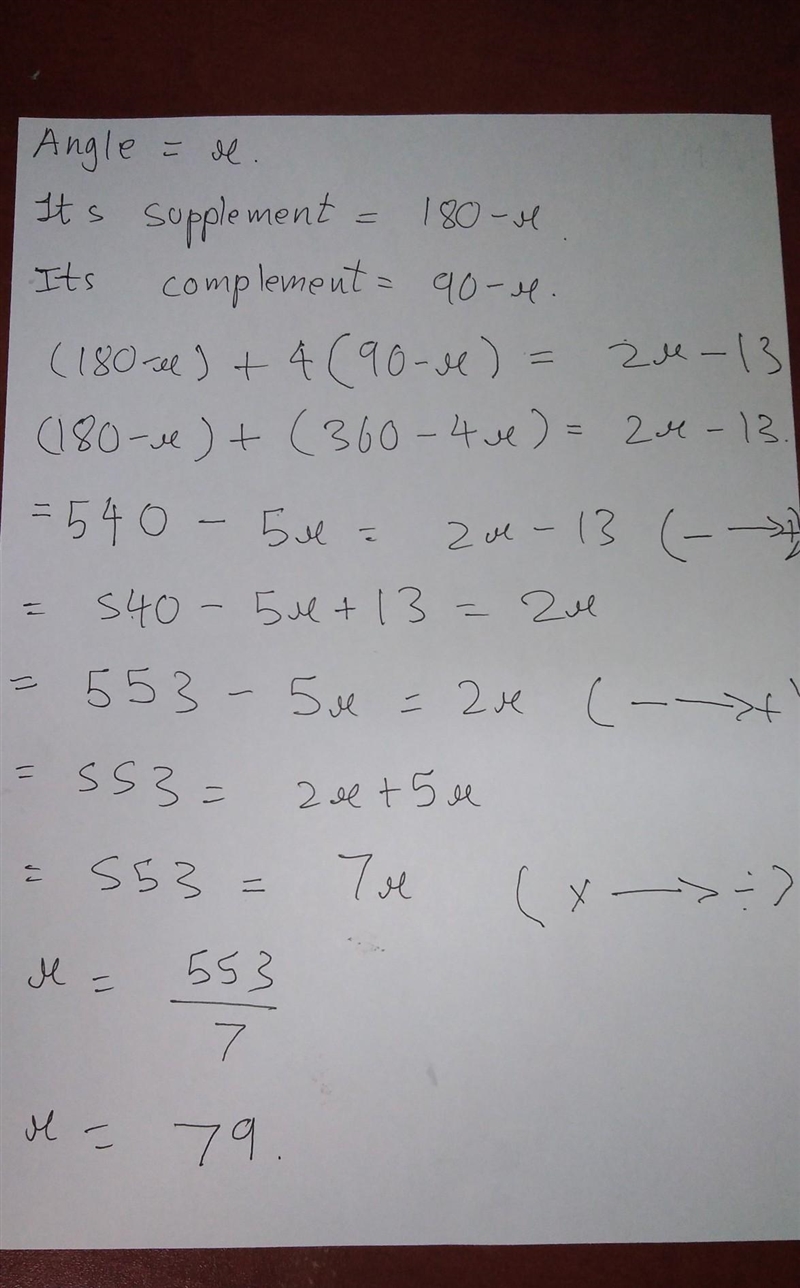 Angle = x.
Its supplement = 180 - x.
Its complement = 90 - x.
(180-x) + 4(90-x) = 2x - 13
(180-x) + (360 - 4x) = 2x - 13.
= 540 - 5x = 2x - 13 (- → +)
= 540 - 5x + 13 = 2x
= 553 - 5x = 2x (- → +)
= 553 = 2x + 5x
= 553 = 7x (x → ÷)
x = 553/7
x = 79.